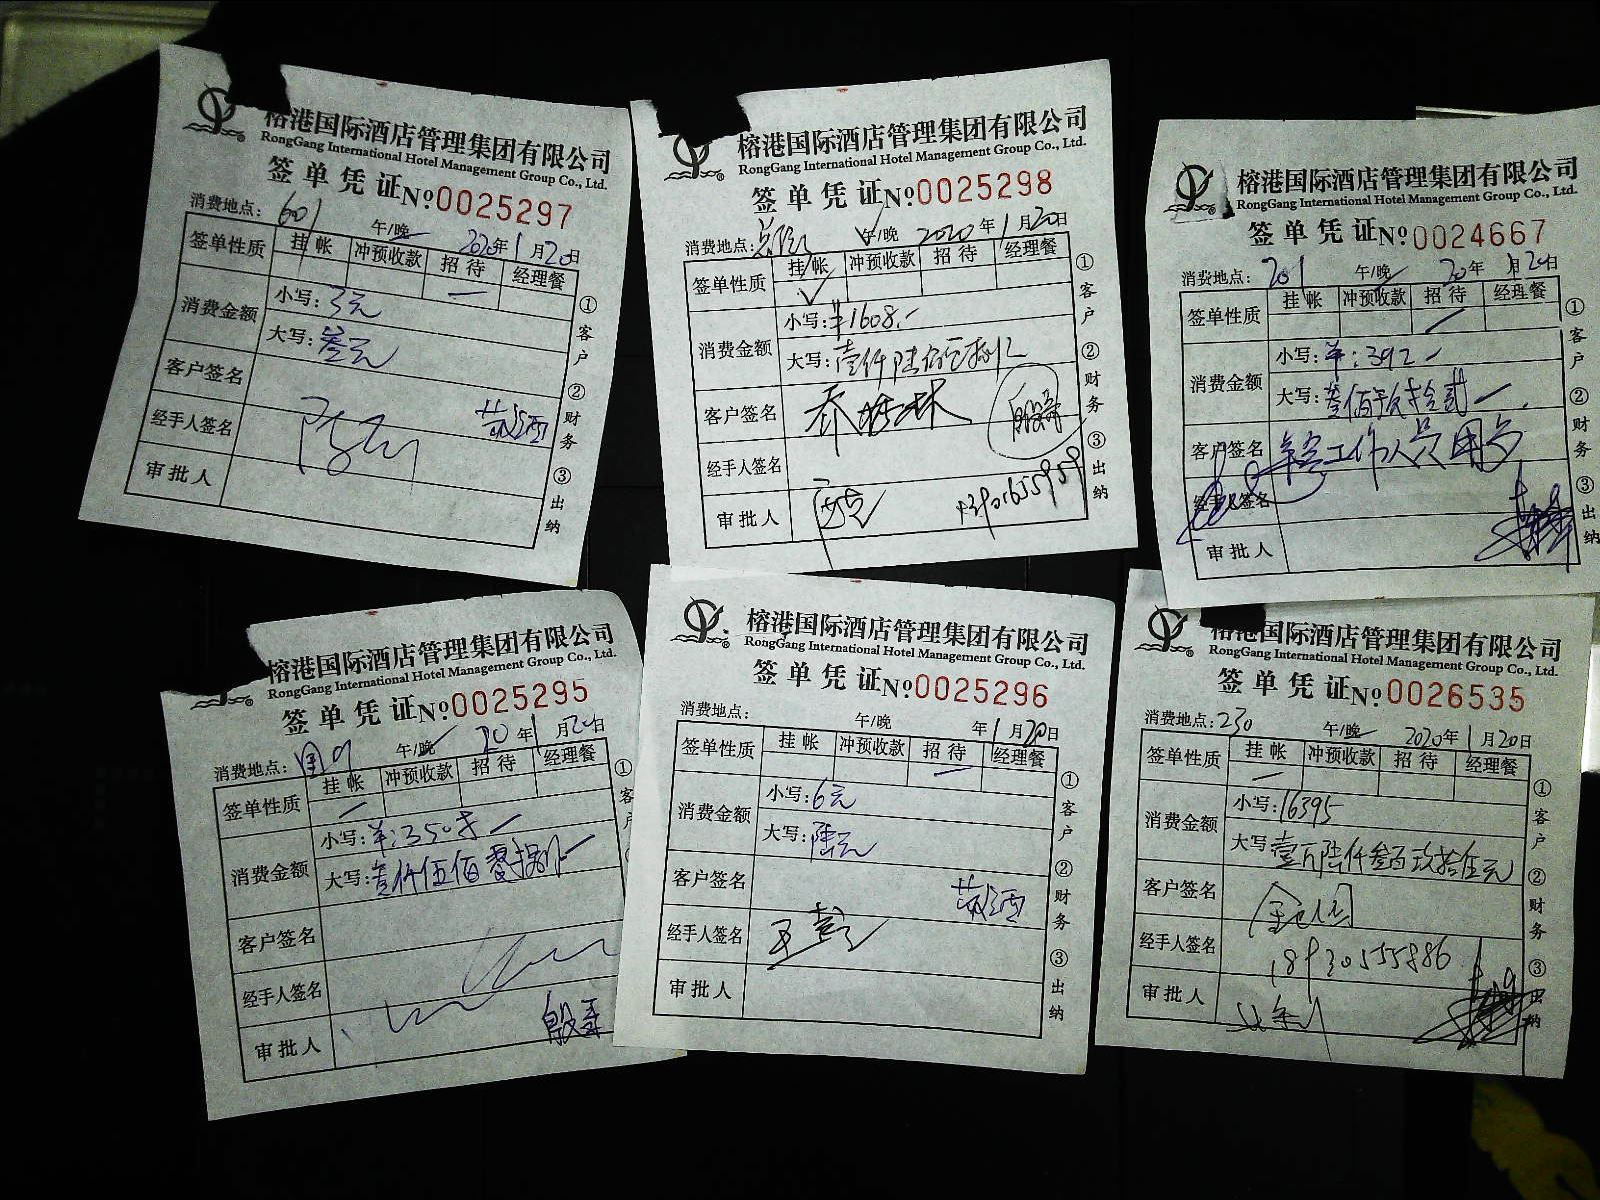 榕港国际酒店管理集团有限公司
RongGang International Hotel Management Group Co., Ltd.
签单凭证 №0025297
消费地点: 601 午/晚 2020年1月20日
签单性质 挂帐 冲预收款 招待 经理餐
消费金额 小写: 3元
大写: 叁元
客户签名
经手人签名
审批人
①客户 ②财务 ③出纳
榕港国际酒店管理集团有限公司
RongGang International Hotel Management Group Co., Ltd.
签单凭证 №0025298
消费地点: 午/晚 2020年1月20日
签单性质 挂帐 冲预收款 招待 经理餐
消费金额 小写: ¥1608.-
大写: 壹仟陆佰零捌元
客户签名
经手人签名
审批人
①客户 ②财务 ③出纳
榕港国际酒店管理集团有限公司
RongGang International Hotel Management Group Co., Ltd.
签单凭证 №0024667
消费地点: 201 午/晚 20年1月20日
签单性质 挂帐 冲预收款 招待 经理餐
消费金额 小写: ¥:392-
大写: 叁佰玖拾贰
客户签名 工作人员用
经手人签名
审批人
①客户 ②财务 ③出纳
榕港国际酒店管理集团有限公司
RongGang International Hotel Management Group Co., Ltd.
签单凭证 №0025295
消费地点: 午/晚 20年1月20日
签单性质 挂帐 冲预收款 招待 经理餐
消费金额 小写:
大写: 壹仟伍佰零捌元
客户签名
经手人签名
审批人
①客户
榕港国际酒店管理集团有限公司
RongGang International Hotel Management Group Co., Ltd.
签单凭证 №0025296
消费地点: 午/晚 年1月20日
签单性质 挂帐 冲预收款 招待 经理餐
消费金额 小写: 6元
大写: 陆元
客户签名
经手人签名
审批人
①客户 ②财务 ③出纳
榕港国际酒店管理集团有限公司
RongGang International Hotel Management Group Co., Ltd.
签单凭证 №0026535
消费地点: 230 午/晚 2020年1月20日
签单性质 挂帐 冲预收款 招待 经理餐
消费金额 小写: 16395
大写 壹万陆仟叁百玖拾伍元
客户签名
经手人签名 18930555886
审批人
①客户 ②财务 ③出纳